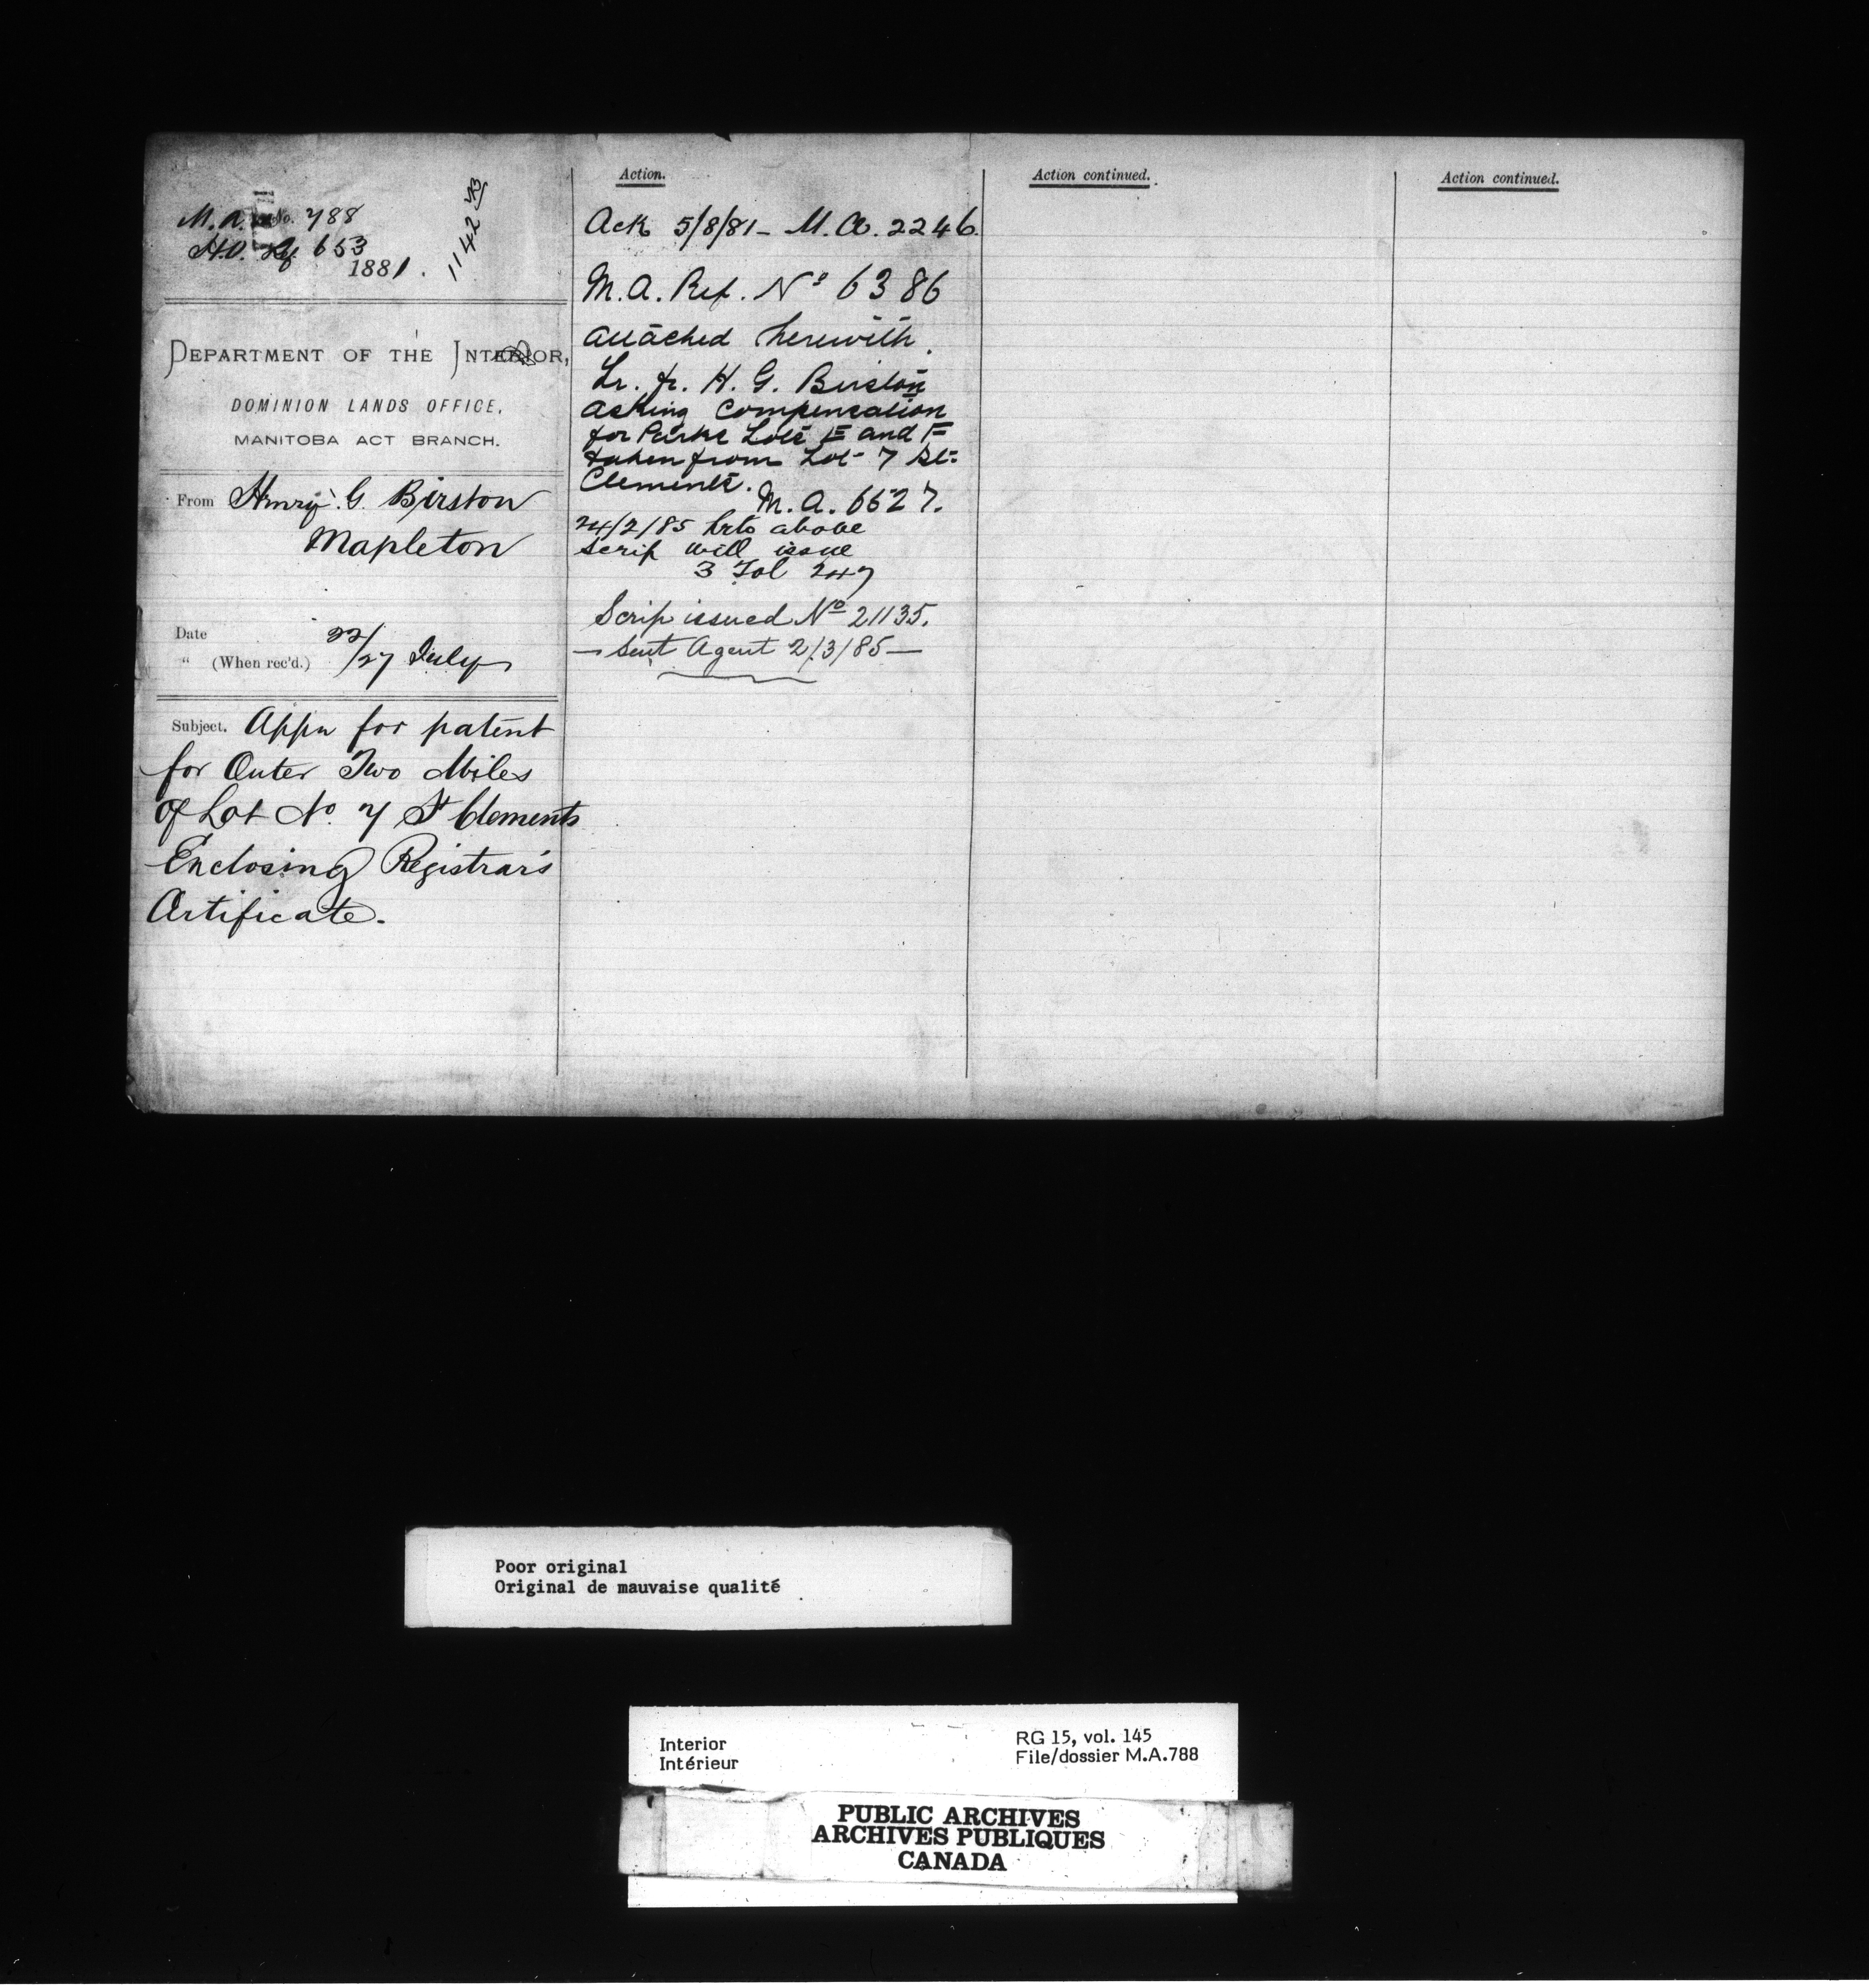 M.A. No. 788
H.O. Rf. 653
1881.
1142
DEPARTMENT OF THE INTERIOR,
DOMINION LANDS OFFICE,
MANITOBA ACT BRANCH.
From Henry G. Birston
Mapleton
Date 22/
" (When rec'd.) /27 July
Subject. Appn for patent
for Outer Two Miles
of Lot No. 7 St Clements
Enclosing Registrar's
Certificate.
Action.
Ack 5/8/81 - M.A. 2246.
M.A. Ref. No 6386
attached herewith.
Lr. fr. H. G. Birston
asking compensation
for Parks Lots E and F
taken from Lot 7 St.
Clements.
M.A. 6627.
24/2/85 above
scrip will issue
3 Fol 247
Scrip issued No 21135.
— Sent Agent 2/3/85 —
Action continued.
Action continued.
Poor original
Original de mauvaise qualité
Interior
Intérieur
RG 15, vol. 145
File/dossier M.A.788
PUBLIC ARCHIVES
ARCHIVES PUBLIQUES
CANADA